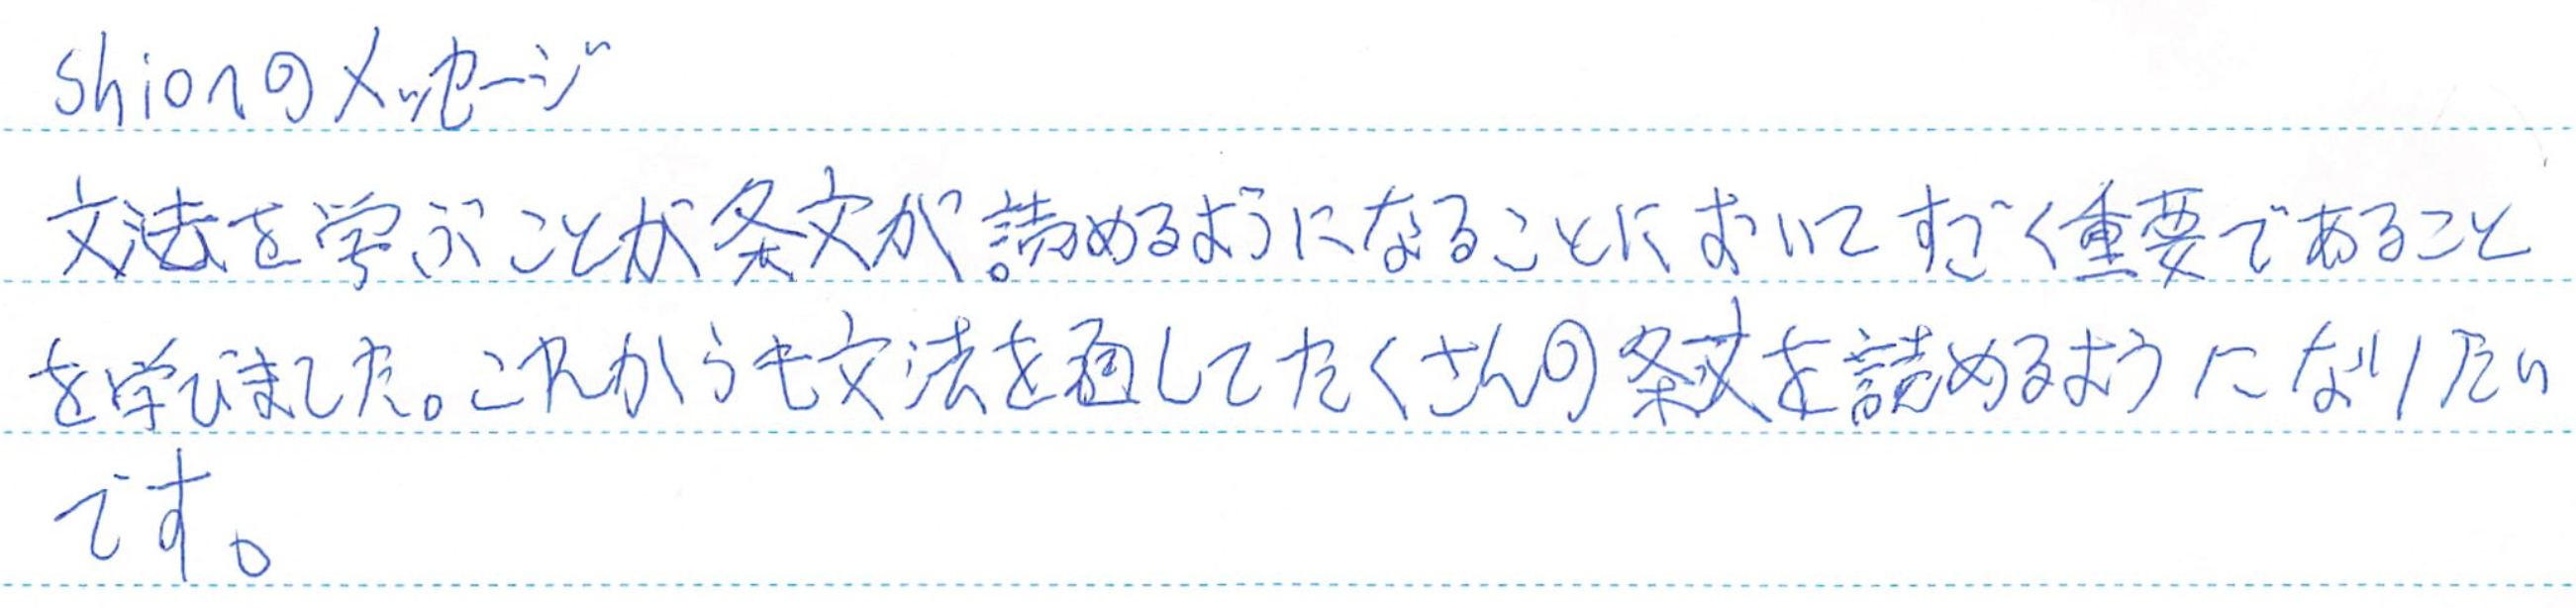 Shionのメッセージ
文法を学ぶことが条文が読めるようになることにおいてすごく重要であること
を学びました。これからも文法を通してたくさんの条文を読めるようになりたい
です。